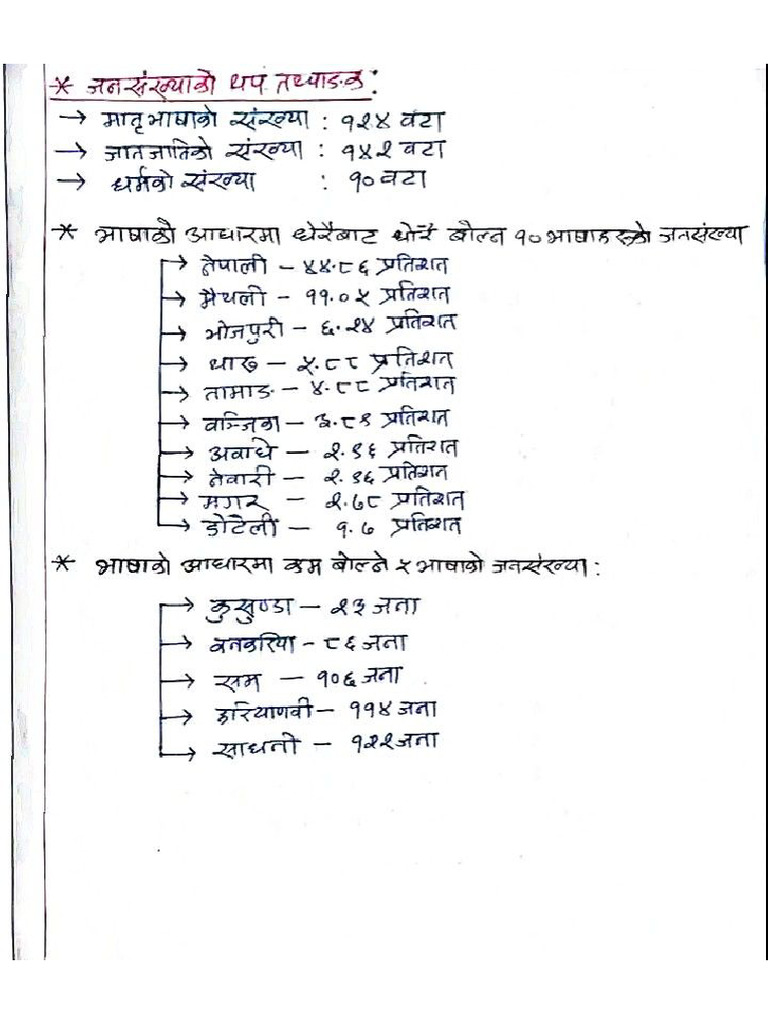 * जनसंख्याको थप तथ्याङक :
→ मातृभाषाको संख्या : १२४ वटा
→ जातजातिको संख्या : १४२ वटा
→ धर्मको संख्या : १० वटा
* भाषाको आधारमा धेरैबाट थोरै बोल्न १० भाषाहरुको जनसंख्या
→ नेपाली – ४४.८६ प्रतिशत
→ मैथली – ११.०५ प्रतिशत
→ भोजपुरी – ६.२४ प्रतिशत
→ थारु – ५.८८ प्रतिशत
→ तामाङ – ४.८८ प्रतिशत
→ वज्जिका – ३.८९ प्रतिशत
→ अवधि – २.९६ प्रतिशत
→ नेवारी – २.९६ प्रतिशत
→ मगर – २.७८ प्रतिशत
→ डोटेली – १.७ प्रतिशत
* भाषाको आधारमा कम बोल्ने ५ भाषाको जनसंख्या :
→ कुसुण्डा – २३ जना
→ वनकरिया – ८६ जना
→ साम – १०६ जना
→ हरियाणवी – ११४ जना
→ साधनी – १२२ जना